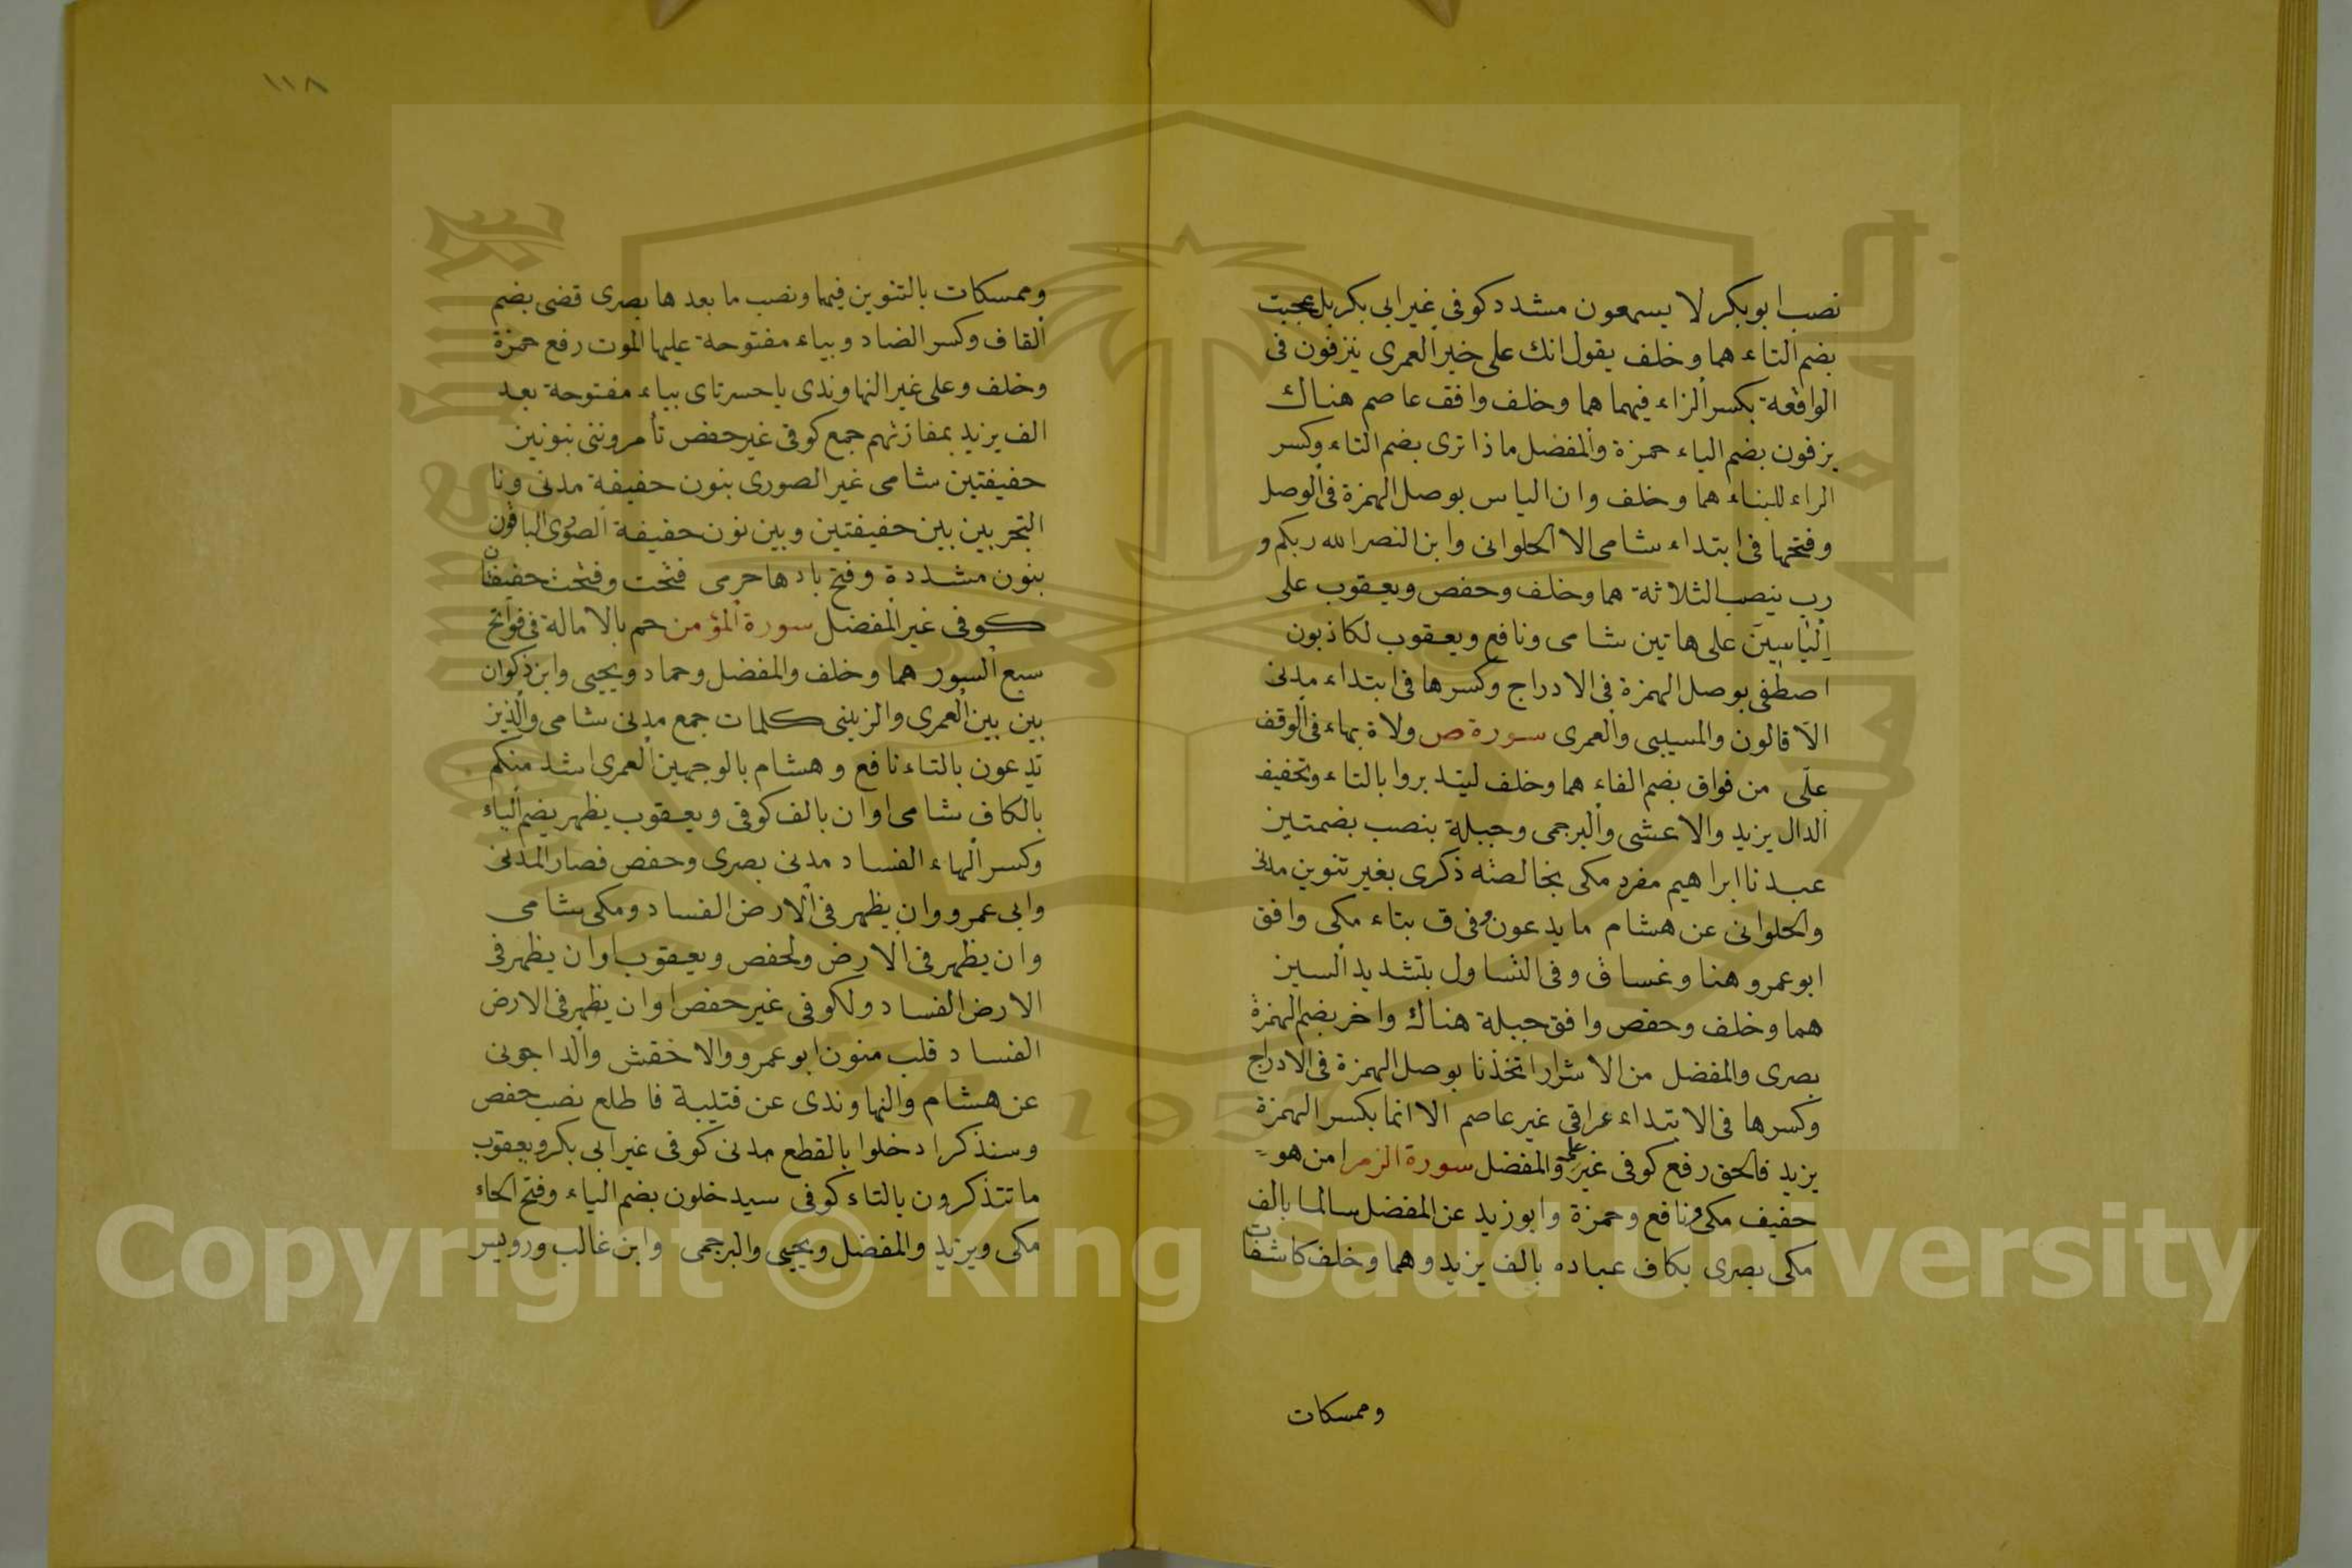 نصب ابو بكر لا يسمعون مشدد كوفى غير ابى بكر بل عجبت
بضم التاء هما وخلف يقول انك على خير العمرى ينزفون فى
الواقعة بكسر الزاء فيهما هما وخلف وافقف عاصم هناك
يزفون بضم الياء حمزة والمفضل ما ذا ترى بضم التاء وكسر
الراء للبناء هما وخلف وان الياس بوصل الهمزة فى الوصل
وفتحها فى ابتداء شامى الا الحلوانى وابن النصر الله ربكم و
رب بنصب الثلاثة هما وخلف وحفص ويعقوب على
اِلْيَاسِينَ على هاتين شامى ونافع ويعقوب لكاذبون
اصطفى بوصل الهمزة فى الادراج وكسرها فى ابتداء مدنى
الا قالون والمسيبى والعمرى سورة ص ولاة بهاء فى الوقف
على من فواق بضم الفاء هما وخلف لتدبروا بالتاء وتخفيف
الدال يزيد والاعشى والبرجمى وجبلة بنصب بضمتين
عبدنا ابراهيم مفرد مكى بخالصة ذكرى بغير تنوين مدنى
والحلوانى عن هشام ما يدعون وفى ق بتاء مكى وافق
ابو عمرو هنا وغساق وفى التساول بتشديد السين
هما وخلف وحفص وافق جبلة هناك واخر بضم الهمزة
بصرى والمفضل من الاشرار اتخذنا بوصل الهمزة فى الادراج
وكسرها فى الابتداء عراقى غير عاصم الا انما بكسر الهمزة
يزيد فالحق رفع كوفى غير على والمفضل سورة الزمر امن هو
حفيف مكى ونافع وحمزة وابو زيد عن المفضل سالما بالف
مكى بصرى بكاف عباده بالف يزيد وهما وخلف كاشفات
وممسكات
١١٨
وممسكات بالتنوين فيهما ونصب ما بعدها بصرى قضى بضم
القاف وكسر الضاد وبياء مفتوحة عليها الموت رفع حمزة
وخلف وعلى غير النهاوندى ياحسرتاى بياء مفتوحة بعد
الف يزيد بمفازتهم جمع كوفى غير حفص تأمروننى بنونين
حفيفتين شامى غير الصورى بنون حفيفة مدنى ونا
التجربين بين حفيفتين وبين نون حفيفة الصورى الباقون
بنون مشددة وفتح ياءها حرمى فتحت وفتحت حفيفان
كوفى غير المفضل سورة المؤمن حم بالامالة فى فواتح
سبع السور هما وخلف والمفضل وحماد ويحيى وابن ذكوان
بين بين العمرى والزينبى كلمات جمع مدنى شامى والذين
تدعون بالتاء نافع وهشام بالوجهين العمرى اشد منكم
بالكاف شامى او ان بالف كوفى ويعقوب يظهر بضم الياء
وكسر الهاء الفساد مدنى بصرى وحفص فصار المدنى
وابى عمرو وان يظهر فى الارض الفساد ومكى شامى
وان يظهر فى الارض ولحفص ويعقوب او ان يظهر فى
الارض الفساد ولكوفى غير حفص او ان يظهر فى الارض
الفساد قلب منون ابو عمرو والاخفش والداجونى
عن هشام والنهاوندى عن قتيبة فاطلع نصب حفص
وسنذكر ادخلوا بالقطع مدنى كوفى غير ابى بكر ويعقوب
ما تتذكرون بالتاء كوفى سيدخلون بضم الياء وفتح الخاء
مكى ويزيد والمفضل ويحيى والبرجمى وابن غالب ورويس
Copyright © King Saud University
1957